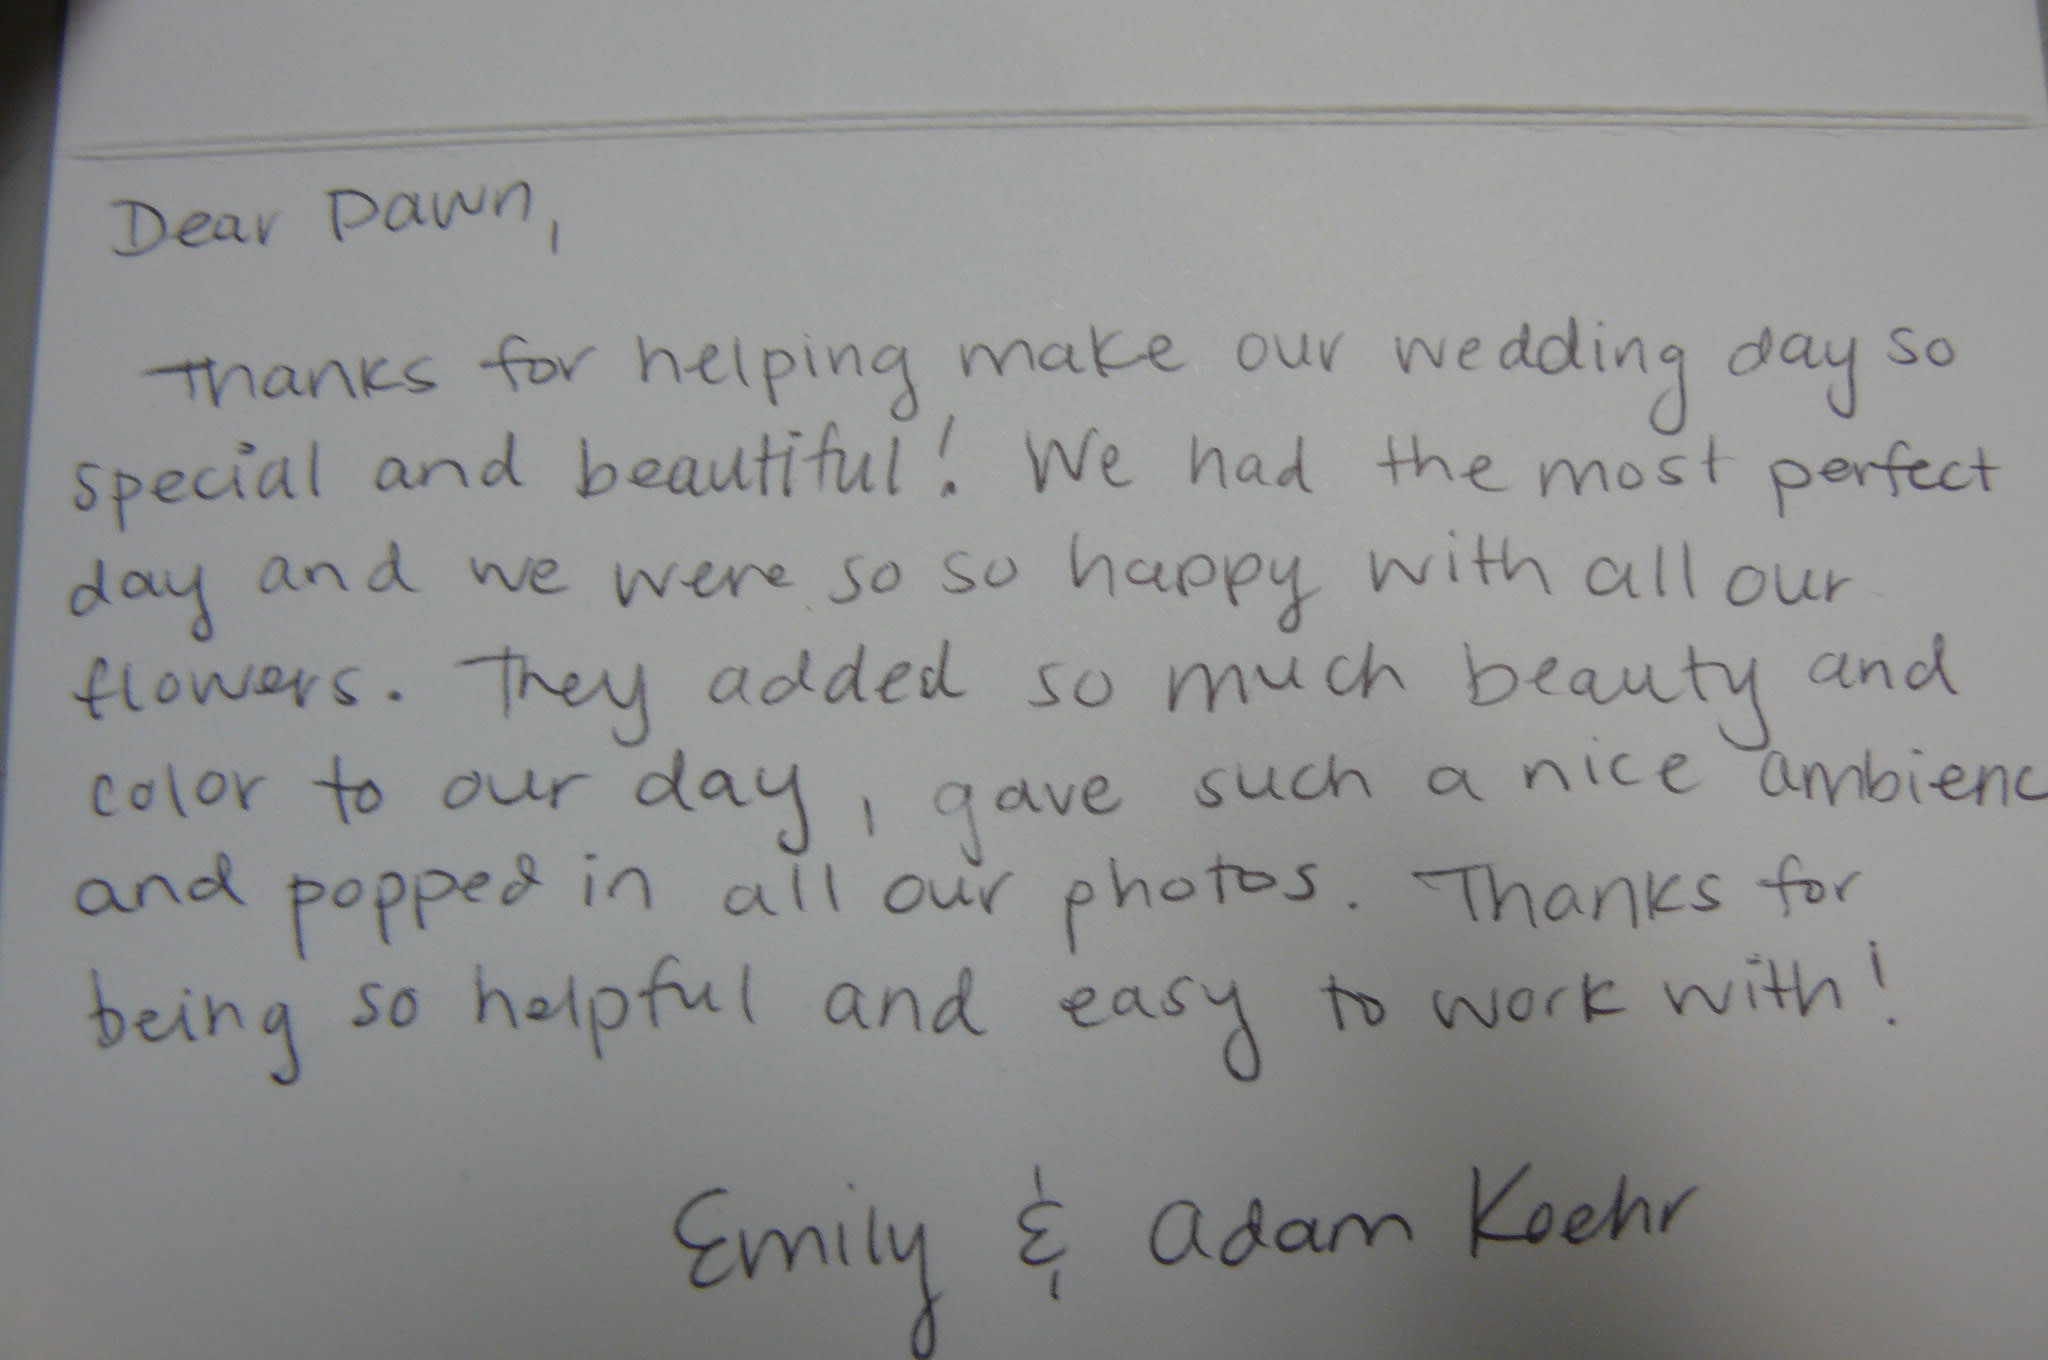 Dear Dawn,
Thanks for helping make our wedding day so
special and beautiful! We had the most perfect
day and we were so so happy with all our
flowers. They added so much beauty and
color to our day, gave such a nice ambienc
and popped in all our photos. Thanks for
being so helpful and easy to work with!
Emily & Adam Koehr